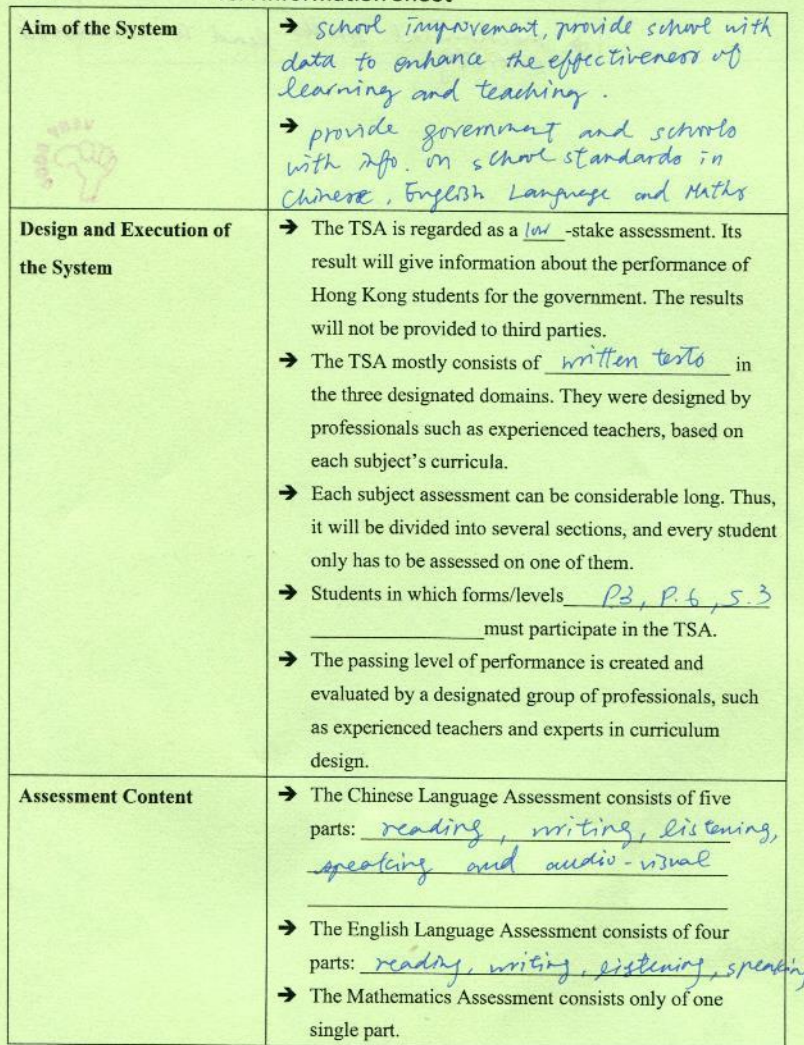 Information Sheet
Aim of the System
→ school improvement, provide school with
data to enhance the effectiveness of
learning and teaching.
→ provide government and schools
with info. on school standards in
Chinese, English Language and Maths
VERY
GOOD
Design and Execution of
the System
→ The TSA is regarded as a low -stake assessment. Its
result will give information about the performance of
Hong Kong students for the government. The results
will not be provided to third parties.
→ The TSA mostly consists of written tests in
the three designated domains. They were designed by
professionals such as experienced teachers, based on
each subject's curricula.
→ Each subject assessment can be considerable long. Thus,
it will be divided into several sections, and every student
only has to be assessed on one of them.
→ Students in which forms/levels P3, P.6, S.3
must participate in the TSA.
→ The passing level of performance is created and
evaluated by a designated group of professionals, such
as experienced teachers and experts in curriculum
design.
Assessment Content
→ The Chinese Language Assessment consists of five
parts: reading, writing, listening,
speaking and audio-visual
→ The English Language Assessment consists of four
parts: reading, writing, listening, speaking
→ The Mathematics Assessment consists only of one
single part.